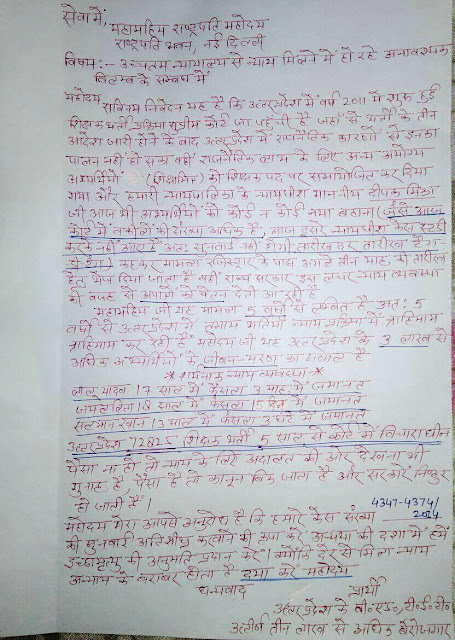 सेवा में,
महामहिम राष्ट्रपति महोदय
राष्ट्रपति भवन, नई दिल्ली
विषय:- उच्चतम न्यायालय से न्याय मिलने में हो रहे अनावश्यक
विलम्ब के सम्बन्ध में
महोदय
सविनय निवेदन यह है कि उत्तर प्रदेश में वर्ष 2011 में शुरू हुई
शिक्षक भर्ती प्रक्रिया सुप्रीम कोर्ट जा पहुँची है जहाँ से भर्ती के तीन
आदेश जारी होने के बाद उत्तर प्रदेश में राजनैतिक कारणों से इनका
पालन नहीं हो सका वहीं राजनैतिक लाभ के लिए अन्य अयोग्य
अभ्यर्थियों (शिक्षामित्र) को शिक्षक पद पर समायोजित कर दिया
गया और हमारी न्यायपालिका के न्यायधीश माननीय दीपक मिश्रा
जी आज भी अभ्यर्थियों को कोई न कोई नया बहाना (जैसे आज
कोर्ट में वकीलों की संख्या अधिक है, आज दूसरे न्यायधीश केस स्टडी
करके नहीं आए हैं अतः सुनवाई नहीं होगी तारीख पर तारीख
कहकर मामला रजिस्ट्रार के पास अगले तीन माह की तारीख
हेतु भेज दिया जाता है वहीं राज्य सरकार इस लाचर न्याय व्यवस्था
की वजह से अयोग्यों को वेतन देती आ रही है
महामहिम जी यह मामला 5 वर्षों से लम्बित है अतः 5
वर्षों से उत्तर प्रदेश में तमाम भर्तियाँ न्याय प्रक्रिया में त्राहिमाम
त्राहिमाम कर रही हैं महोदय जी यह उत्तर प्रदेश के 3 लाख से
अधिक अभ्यर्थियों के जीवन-मरण का सवाल है
* शर्मनाक न्याय व्यवस्था *
लालू यादव 17 साल में फैसला 3 माह में जमानत
जयललिता 18 साल में फैसला 15 दिन में जमानत
सलमान खान 13 साल में फैसला 3 घंटे में जमानत
उत्तर प्रदेश 72825 शिक्षक भर्ती 5 साल से कोर्ट में विचाराधीन
पैसा ना हो तो न्याय के लिए अदालत की ओर देखना भी
गुनाह है पैसा है तो कानून बिक जाता है और सरकारें निष्ठुर
हो जाती हैं।
महोदय मेरा आपसे अनुरोध है कि हमारे केस संख्या 4347-4374/2014
की सुनवाई अतिशीघ्र करवाने की कृपा करें अन्यथा की दशा में हमें
इच्छामृत्यु की अनुमति प्रदान करें। क्योंकि देर से मिला न्याय
अन्याय के बराबर होता है दया करें महोदय
धन्यवाद प्रार्थी
उत्तर प्रदेश के बी०एड० टी०ई०टी०
उत्तीर्ण तीन लाख से अधिक बेरोजगार